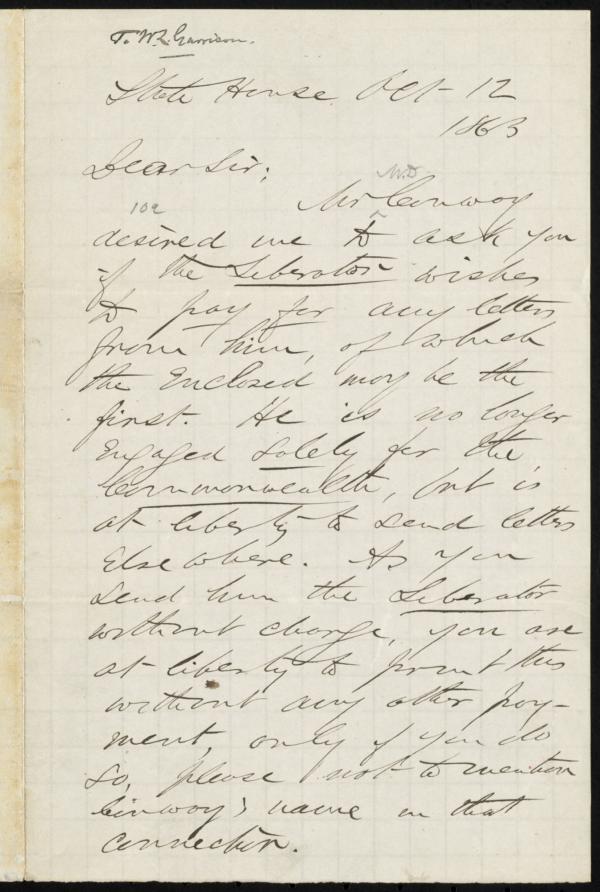 To W. L. Garrison.
State House Oct- 12
1863
Dear Sir;
M.D.
Mr Conway
109
desired me to ask you
if the Liberator wishes
to pay for any letters
from him, of which
the Enclosed may be the
first. He is no longer
Engaged solely for the
Commonwealth, but is
at liberty to send letters
Elsewhere. As you
send him the Liberator
without charge, you are
at liberty to print this
without any other pay-
ment, only if you do
so, please not to mention
Conway's name in that
connection.